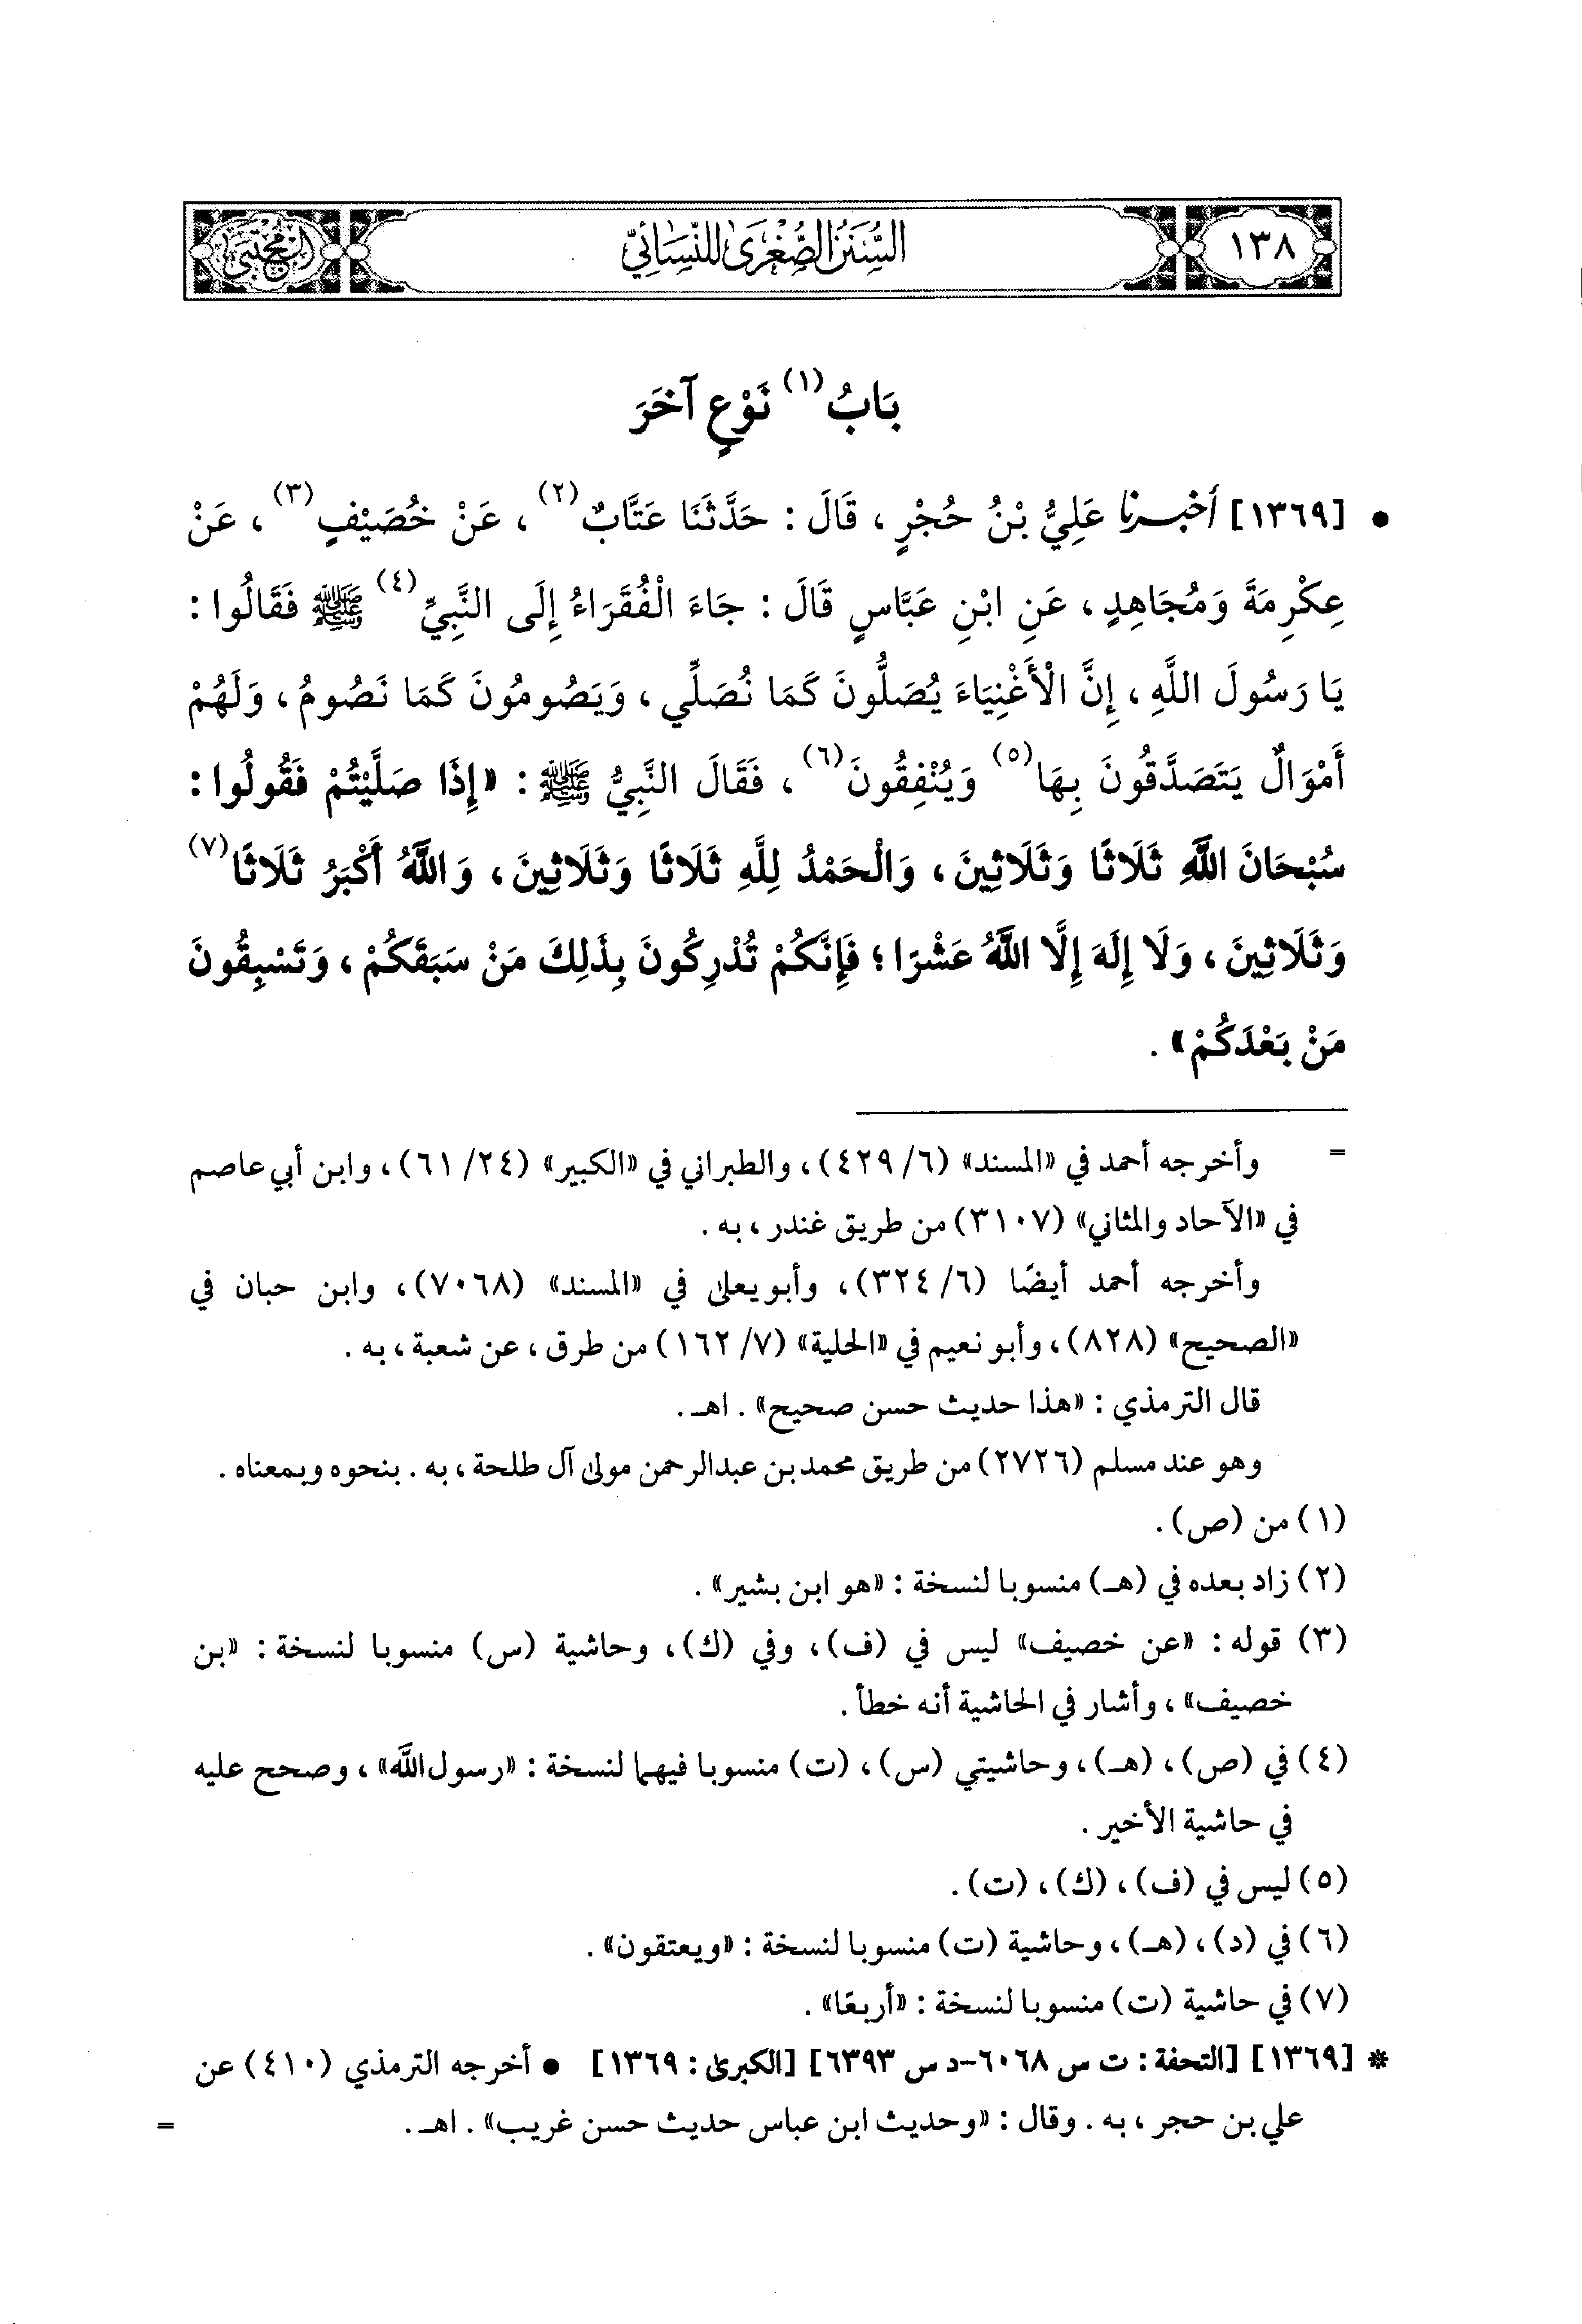 ١٣٨
السُّنَنُ الصُّغْرَىٰ لِلنَّسَائِيّ
المجتبى
بَابُ (١) نَوْعٍ آخَرَ
• [١٣٦٩] أخبرنا عَلِيُّ بْنُ حُجْرٍ ، قَالَ : حَدَّثَنَا عَتَّابٌ (٢) ، عَنْ خُصَيْفٍ (٣) ، عَنْ
عِكْرِمَةَ وَمُجَاهِدٍ ، عَنِ ابْنِ عَبَّاسٍ قَالَ : جَاءَ الْفُقَرَاءُ إِلَى النَّبِيِّ (٤) ﷺ فَقَالُوا :
يَا رَسُولَ اللَّهِ ، إِنَّ الْأَغْنِيَاءَ يُصَلُّونَ كَمَا نُصَلِّي ، وَيَصُومُونَ كَمَا نَصُومُ ، وَلَهُمْ
أَمْوَالٌ يَتَصَدَّقُونَ بِهَا (٥) وَيُنْفِقُونَ (٦) ، فَقَالَ النَّبِيُّ ﷺ : «إِذَا صَلَّيْتُمْ فَقُولُوا :
سُبْحَانَ اللَّهِ ثَلَاثًا وَثَلَاثِينَ ، وَالْحَمْدُ لِلَّهِ ثَلَاثًا وَثَلَاثِينَ ، وَاللَّهُ أَكْبَرُ ثَلَاثًا (٧)
وَثَلَاثِينَ ، وَلَا إِلَهَ إِلَّا اللَّهُ عَشْرَا ؛ فَإِنَّكُمْ تُدْرِكُونَ بِذَلِكَ مَنْ سَبَقَكُمْ ، وَتَسْبِقُونَ
مَنْ بَعْدَكُمْ» .
= وأخرجه أحمد في «المسند» (٦/ ٤٢٩) ، والطبراني في «الكبير» (٢٤/ ٦١) ، وابن أبي عاصم
في «الآحاد والمثاني» (٣١٠٧) من طريق غندر ، به .
وأخرجه أحمد أيضًا (٦/ ٣٢٤) ، وأبو يعلى في «المسند» (٧٠٦٨) ، وابن حبان في
«الصحيح» (٨٢٨) ، وأبو نعيم في «الحلية» (٧/ ١٦٢) من طرق ، عن شعبة ، به .
قال الترمذي : «هذا حديث حسن صحيح» . اهـ .
وهو عند مسلم (٢٧٢٦) من طريق محمد بن عبدالرحمن مولى آل طلحة ، به . بنحوه وبمعناه .
(١) من (ص) .
(٢) زاد بعده في (هـ) منسوبا لنسخة : «هو ابن بشير» .
(٣) قوله : «عن خصيف» ليس في (ف) ، وفي (ك) ، وحاشية (س) منسوبا لنسخة : «بن
خصيف» ، وأشار في الحاشية أنه خطأ .
(٤) في (ص) ، (هـ) ، وحاشيتي (س) ، (ت) منسوبا فيهما لنسخة : «رسول اللَّه» ، وصحح عليه
في حاشية الأخير .
(٥) ليس في (ف) ، (ك) ، (ت) .
(٦) في (د) ، (هـ) ، وحاشية (ت) منسوبا لنسخة : «ويعتقون» .
(٧) في حاشية (ت) منسوبا لنسخة : «أربعًا» .
* [١٣٦٩] [التحفة : ت س ٦٠٦٨-د س ٦٣٩٣] [الكبرى : ١٣٦٩] • أخرجه الترمذي (٤١٠) عن
علي بن حجر ، به . وقال : «وحديث ابن عباس حديث حسن غريب» . اهـ . =